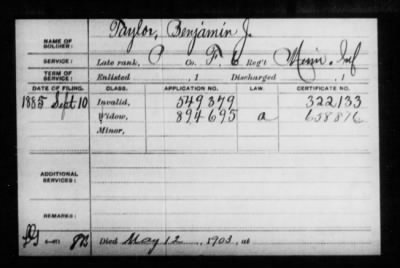 NAME OF SOLDIER: Taylor, Benjamin J.
SERVICE: Late rank, P Co. F, 6 Reg't Minn. Inf
TERM OF SERVICE: Enlisted , 1 Discharged , 1
DATE OF FILING. CLASS. APPLICATION NO. LAW. CERTIFICATE NO.
1885 Sept 10 Invalid, 549 379 322,133
Widow, 894 695 a 658876
Minor,
ADDITIONAL SERVICES:
REMARKS:
Died May 12 , 1903, at